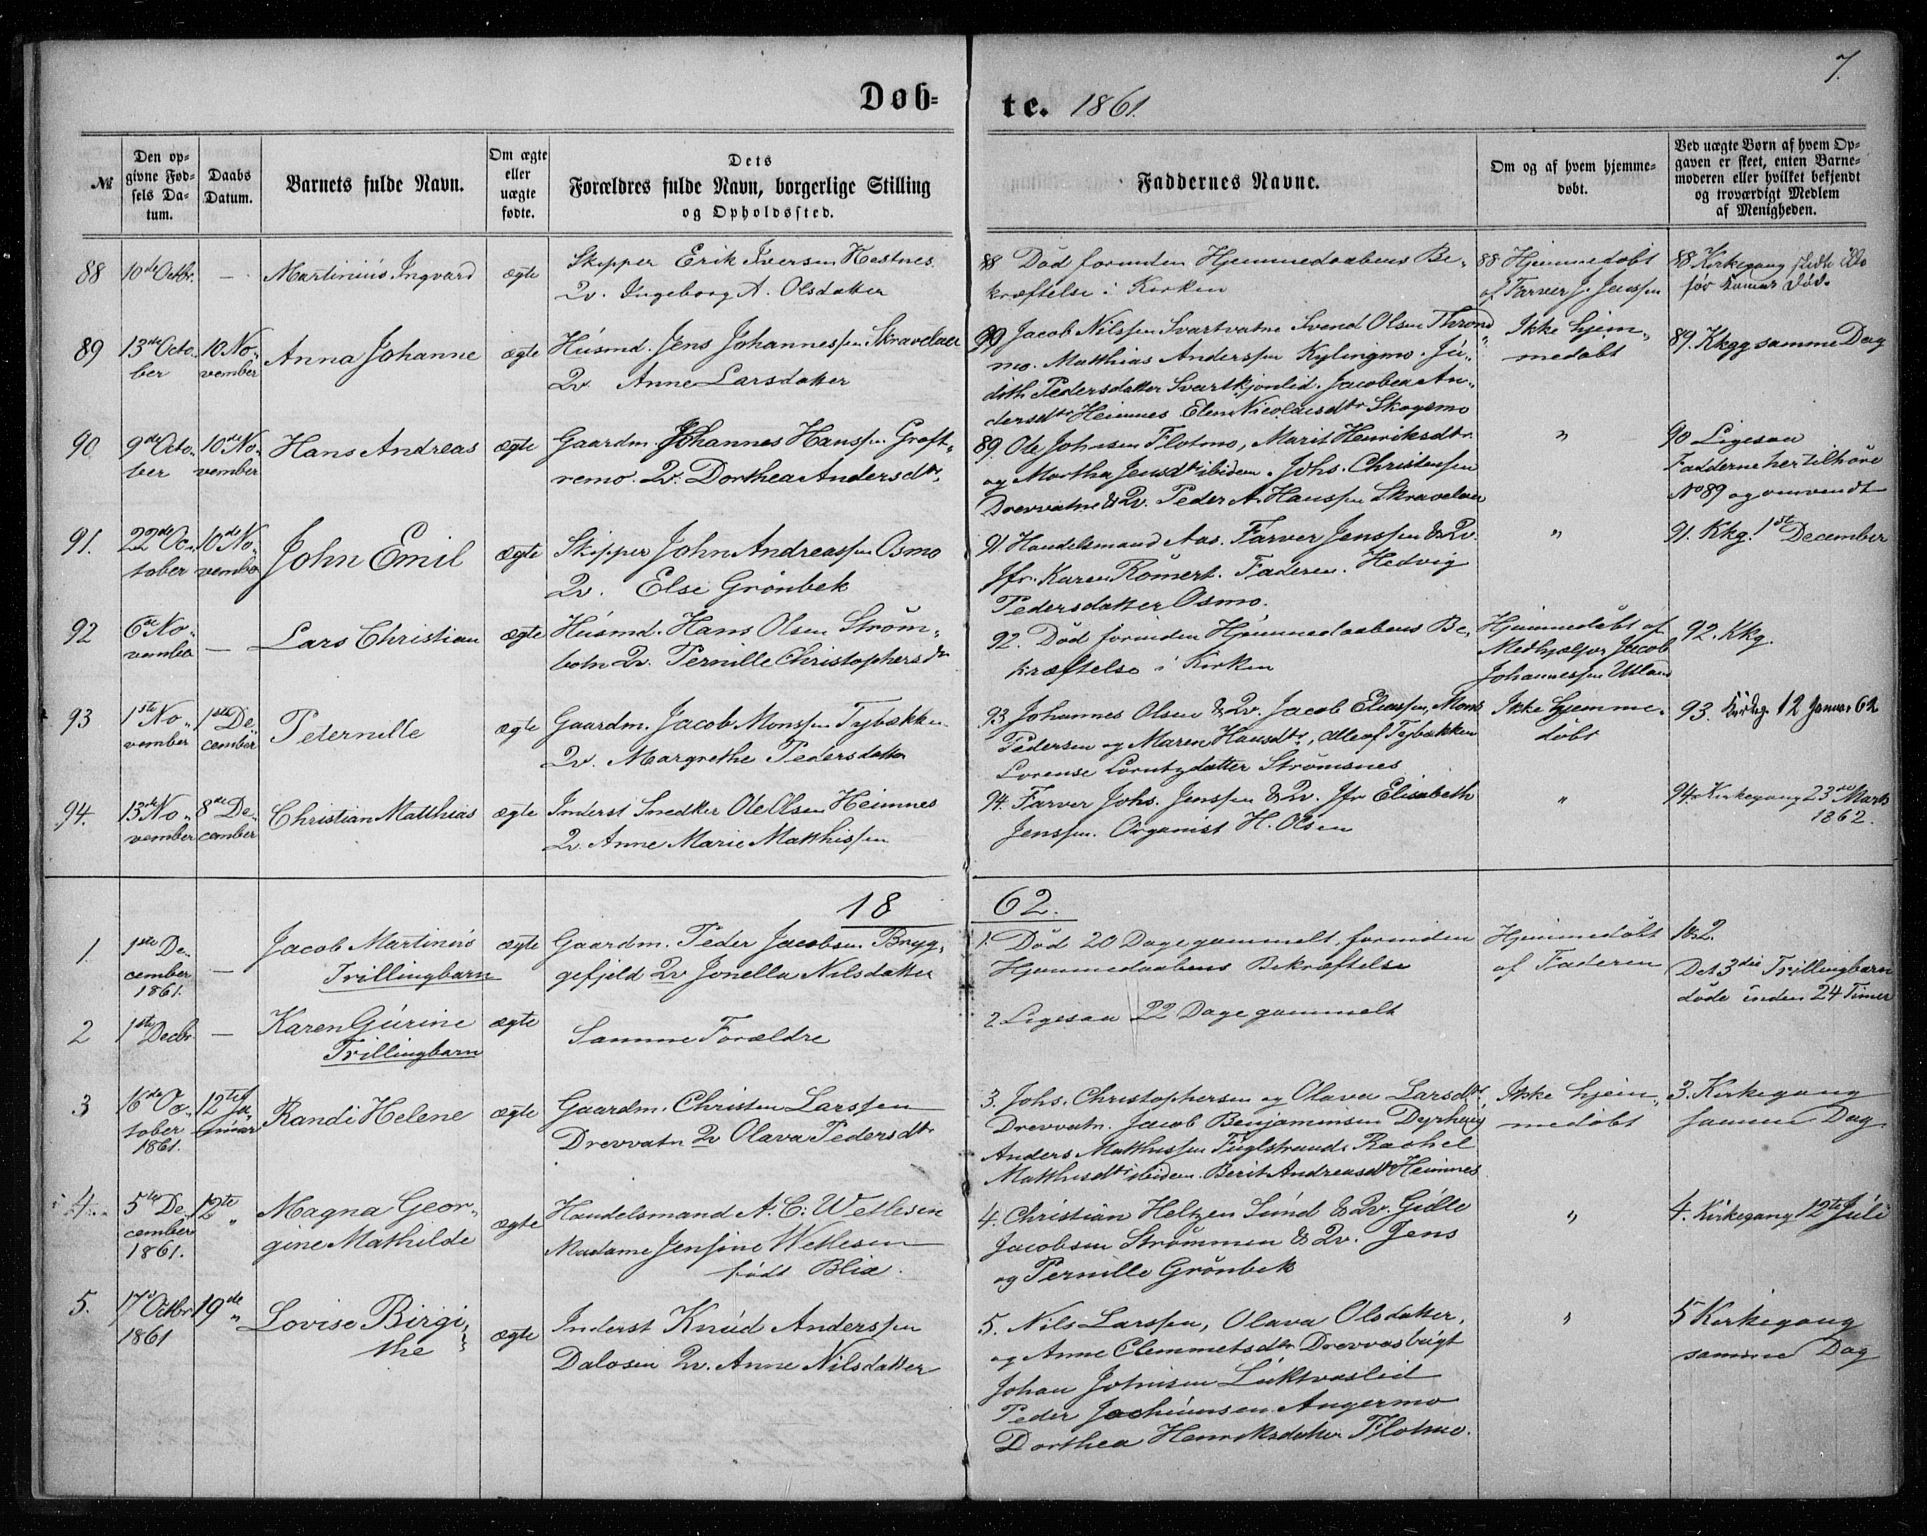 7.
Døb-
te. 1861.
№
Den op-
givne Fød-
sels Da-
tum.
Daabs
Datum.
Barnets fulde Navn.
Om ægte
eller
uægte
fødte.
Dets
Forældres fulde Navn, borgerlige Stilling
og Opholdssted.
Faddernes Navne.
Om og af hvem hjemme-
døbt.
Ved uægte Børn af hvem Op-
gaven er skeet, enten Barne-
moderen eller hvilket bekjendt
og troværdigt Medlem
af Menigheden.
88
10de Octbr.
—
Martinius Ingvard
ægte
Skipper Erik Iversen Hestnes
Qv. Ingeborg A. Olsdatter
88 Død forinden Hjemmedaabens Be-
kræftelse i Kirken
88 Hjemmedøbt
af Farver J. Jenssen
88 Kirkegang
før Død.
89
13de Octo-
ber
10 No-
vember
Anna Johanne
ægte
Húsmd. Jens Johannessen Skravelaa
Qv. Anne Larsdatter
90 Jacob Nilssen Svartvatne Svend Olsen Thrond
mo. Matthias Anderssen Kylingmo. Jú-
dith Pedersdatter Svartkjønlid. Jacobea An-
dersdtr Heimnes Elen Nicolaisdtr Skogsmo
Ikke hjem-
medøbt
89. Kkgg samme Dag
90
9de Octo-
ber
10de No-
vember
Hans Andreas
ægte
Gaardm. Johannes Hanssen Grøft-
remo. Qv. Dorthea Andersdtr.
89. Ole Johnsen Flotmo, Marit Henriksdtr.
og Martha Jensdtr ibidem. Johs. Christensen
Drevvatne & Qv. Peder A. Hanssen Skravelaa
"
90 Ligesaa
Fadderne her tilhøre
No 89 og omvendt
91.
22de Oc-
tober
10de No-
vember
John Emil
ægte
Skipper John Andreassen Osmo
Qv. Else Grønbek
91 Handelsmand Aas. Farver Jenssen & Qv.
Jfr. Karen Rømert. Faderen. Hedvig
Pedersdatter Osmo.
"
91. Kkg. 1ste December
92
6te No-
vember
—
Lars Christian
ægte
Húsmd. Hans Olsen Strøm-
botn Qv. Pernille Christophersdtr
92. Død forinden Hjemmedaabens Be-
kræftelse i Kirken
Hjemmedøbt af
Medhjælper Jacob
Johannessen Utland
92. Kkg.
93
1ste No-
vember
1ste De-
cember
Peternille
ægte
Gaardm. Jacob Monssen Tybækken
Qv. Margrethe Pedersdatter
93 Johannes Olsen & Qv. Jacob Eliassen, Mons
Pedersen og Maren Hansdtr, alle af Tybækken
Lorense Lorntzdatter Strømsnes
Ikke hjemme-
døbt
93. Kirkeg. 12 Januar 62
94.
13de No-
vember
8de De-
cember
Christian Matthias
ægte
Inderst Snedker Ole Olsen Heimnes
Qv. Anne Marie Matthissen
94. Farver Johs. Jenssen & Qv. Jfr Elisabeth
Jenssen. Organist H. Olsen
"
94. Kirkegang 23de Marts
1862.
18
62.
1.
1ste De-
cember
1861.
—
Jacob Martinús
Trillingbarn
ægte
Gaardm. Peder Jacobsen Bryg-
gefjeld Qv Jonella Nilsdatter
1. Død 20 Dage gammelt, forinden
Hjemmedaabens Bekræftelse
Hjemmedøbt
af Faderen
1&2.
Det 3die Trillingbarn
døde inden 24 Timer
2
1ste Decbr
—
Karen Gúrine
Trillingbarn
ægte
Samme Forældre
2 Ligesaa 22 Dage gammelt
3
16de Oc-
tober
1861.
12te Ja-
nuar
Randi Helene
ægte
Gaardm. Christen Larssen
Drevvatn Qv Olava Pedersdtr
3. Johs. Christophersen og Olava Larsdtr
Drevvatn. Jacob Benjaminsen Dyrhaug
Anders Matthissen Fuglstrand. Rachel
Matthisdtr ibidem. Berit Andreasdtr Heimnes
Ikke hjem-
medøbt
3. Kirkegang
samme Dag
4.
5te De-
cember
1861.
12te
"
Magna Geor-
gine Mathilde
ægte
Handelsmand A. C. Wetlesen
Madame Jensine Wetlesen
født Blix.
4. Christian Heltzen Súnd & Qv. Gidle
Jacobsen Strømmen & Qv. Jens
og Pernille Grønbek
"
4. Kirkegang 12te Júli
5.
17de Octbr
1861
19de
"
Lovise Birgi-
the
ægte
Inderst Knúd Anderssen
Dalosen Qv. Anne Nilsdatter
5. Nils Larssen, Olava Olsdatter,
og Anne Clemmetsdtr Drevvasbugt
Johan Johnsen Lúktvaslid
Peder Jochúmsen Angermo
Dorthea Henriksdatter Flotmo.
"
5 Kirkegang
samme Dag